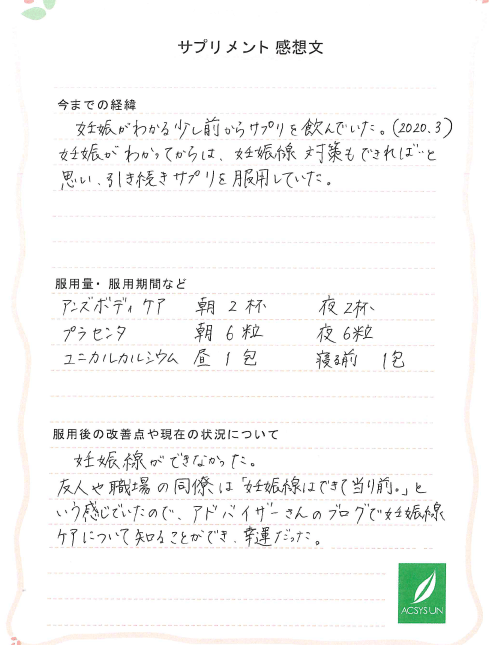 サプリメント 感想文
今までの経緯
妊娠がわかる少し前からサプリを飲んでいた。(2020.3)
妊娠がわかってからは、妊娠線 対策もできれば…と
思い、引き続きサプリを服用していた。
服用量・服用期間など
アンズボディケア 朝 2杯 夜 2杯
プラセンタ 朝 6粒 夜 6粒
ユニカルカルシウム 昼 1包 寝る前 1包
服用後の改善点や現在の状況について
妊娠線ができなかった。
友人や職場の同僚は「妊娠線はできて当り前。」と
いう感じでいたので、アドバイザーさんのブログで妊娠線
ケアについて知ることができ、幸運だった。
ACSYSUN